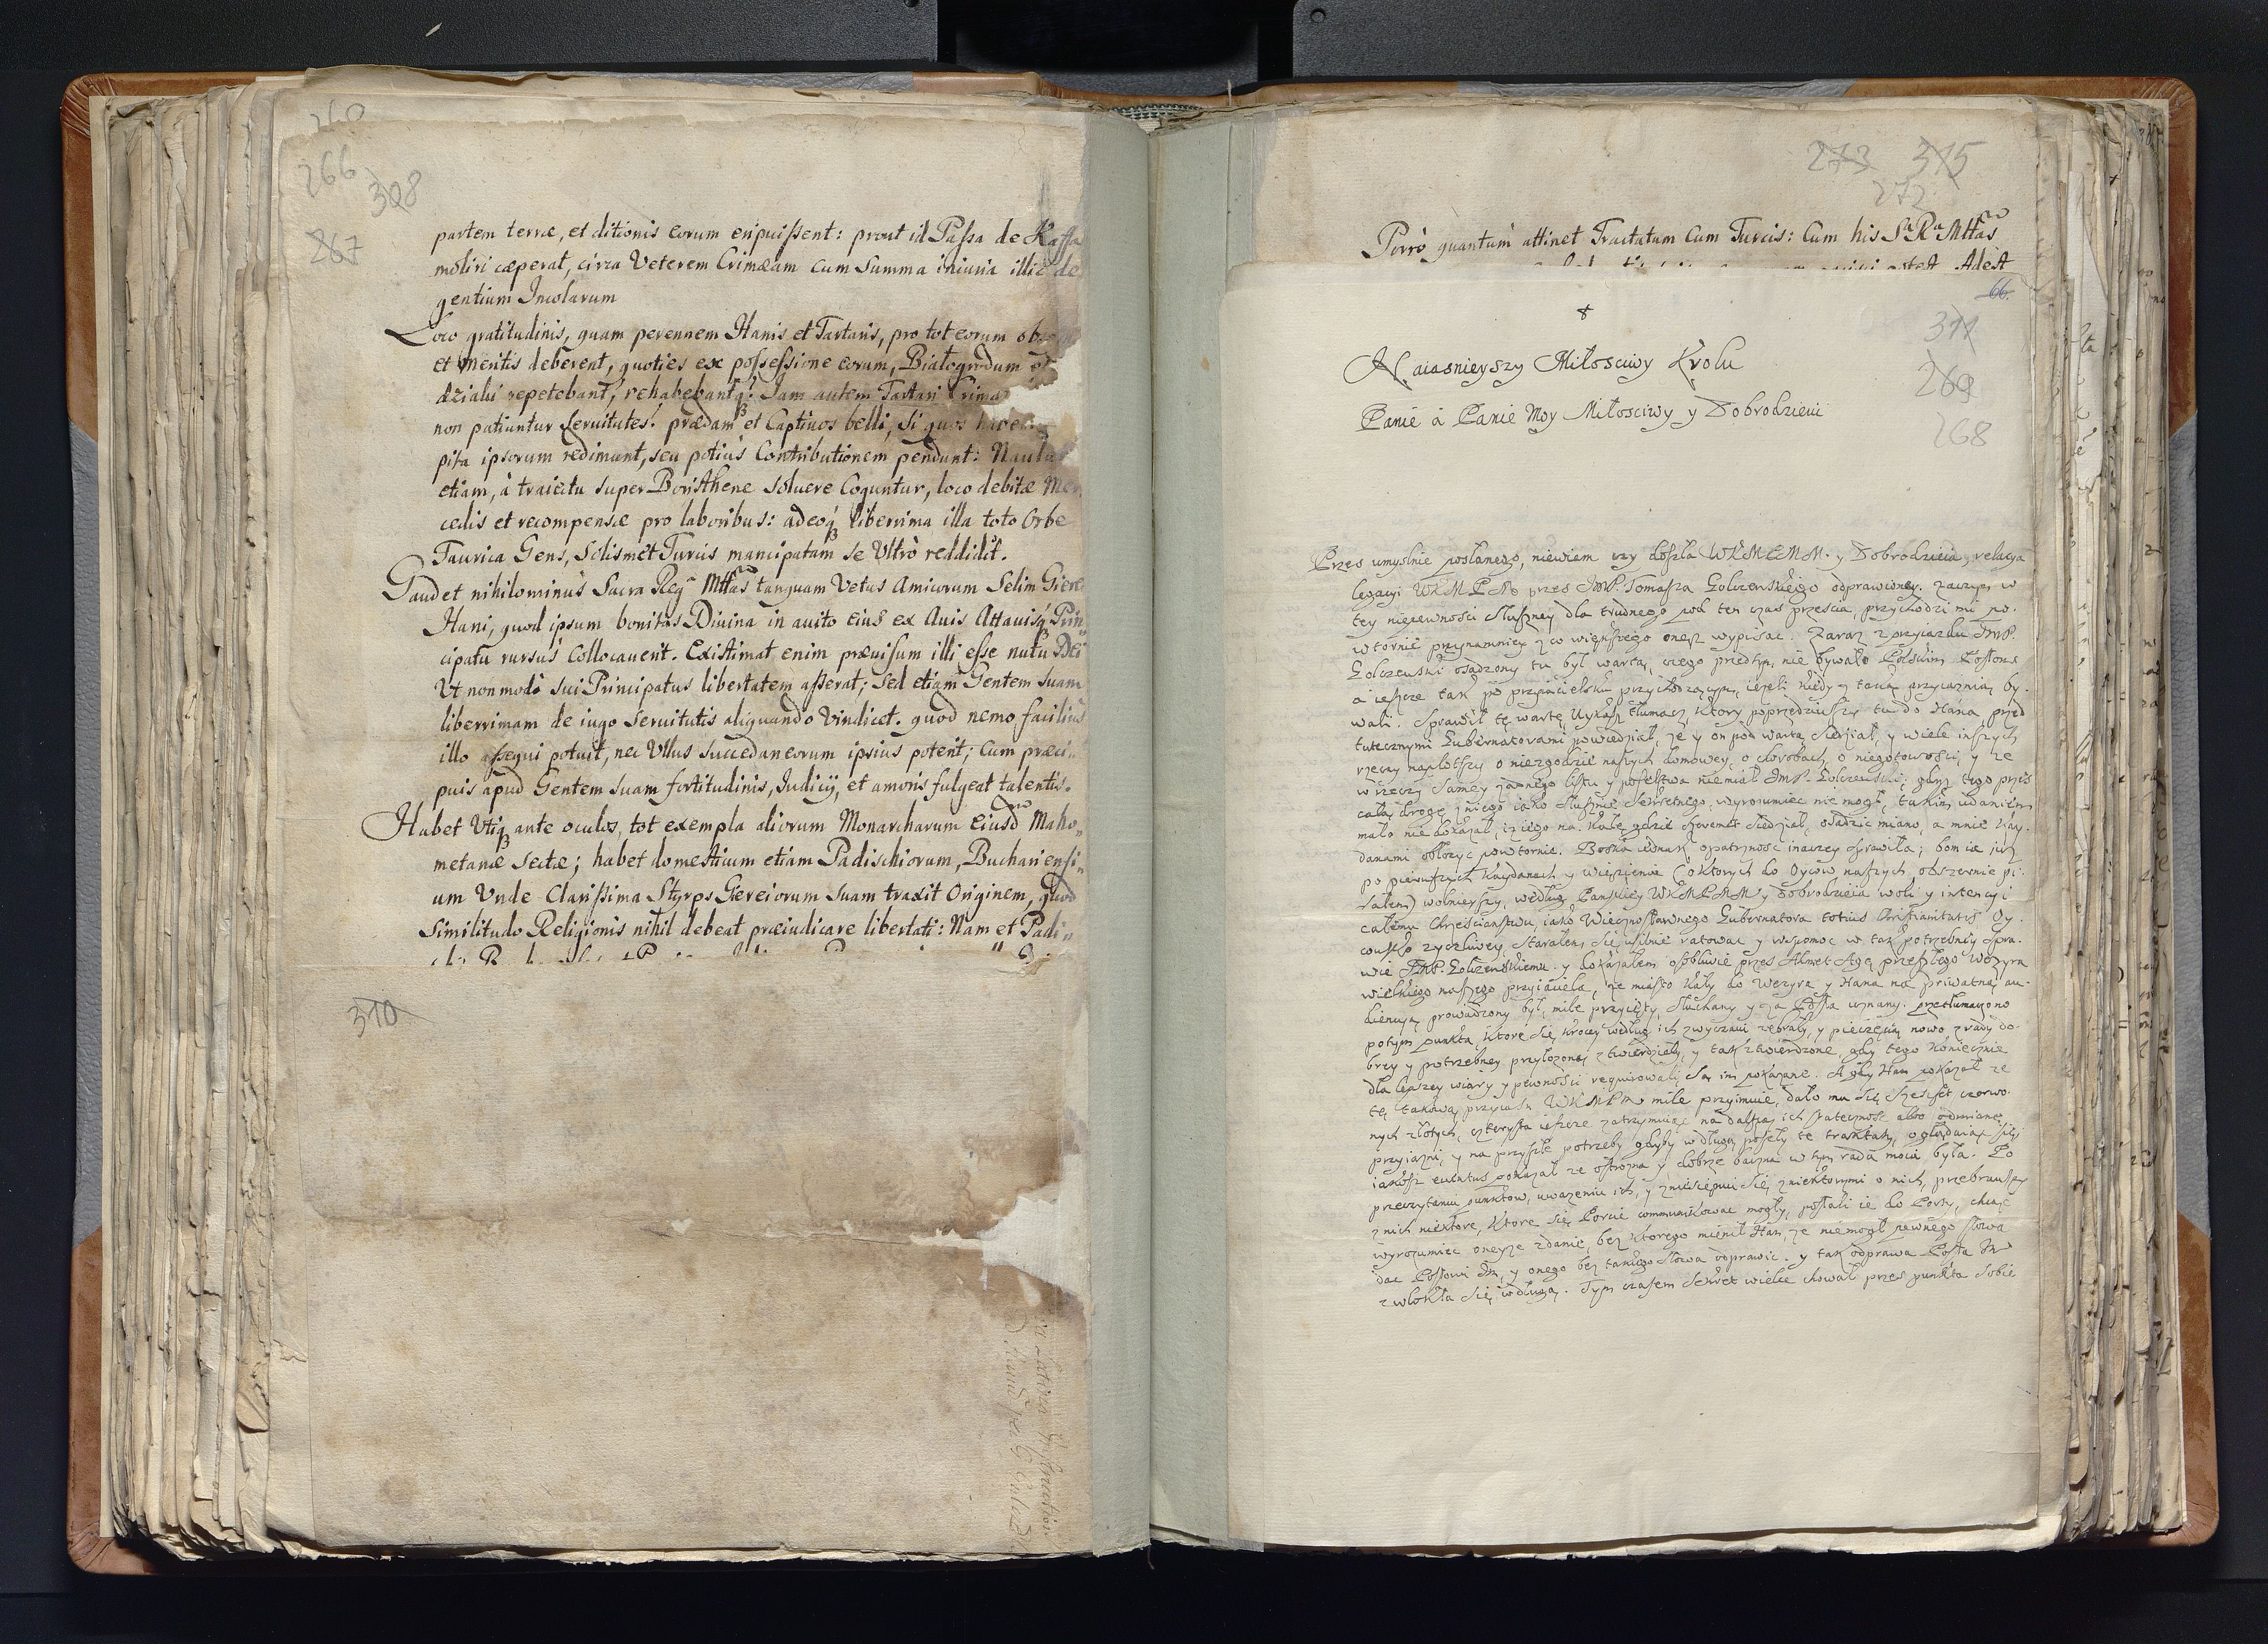 260
266
308
267
partem terræ, et ditionis eorum eripuissent: prout id Passa de Kaffa
moliri cæperat, circa Veterem Crimæam cum summa iniuria illic de
gentium Incolarum
Loco gratitudinis, quam perennem Hanis et Tartaris, pro tot eorum
et meritis deberent, quoties ex possessione eorum, Bialogrodum et
repetebant, rehabebantq! Iam autem Tartari Crimæ
non patiuntur servitutes! prædam et Captivos belli, si quos
pita ipsorum redimunt, seu potius Contributionem pendunt: Naula
etiam, à traiectu super Boristhene soluere Coguntur, loco debitæ Mer
cedis et recompensæ pro laboribus: adeoq liberrima illa toto Orbe
Taurica Gens, solismet Turcis mancipatam se Vltrò reddidit.
Gaudet nihilominus Sacra Regª Mttas tanquam Vetus Amicorum Selim Gierei
Hani, quod ipsum bonitas Divina in avito eius ex Avis Attavisq Prin
cipatu rursus Collocauerit. Existimat enim prævisum illi esse nutu Dei
Vt non modò sui Principatus libertatem asserat; sed etiam Gentem suam
liberrimam de iugo servitutis aliquando Vindicet. quod nemo facilius
illo assequi potuit, nec Vllus succedaneorum ipsius poterit; Cum præci
puis apud Gentem suam fortitudinis, Iudicij, et amoris fulgeat talentis.
Habet Vtiq ante oculos, tot exempla aliorum Monarcharum Eiusd Maho
metanæ sectæ; habet domesticum etiam Padischiorum, Buchariensi
um Vnde Clarissima Styrps Giereiorum suam traxit Originem, quod
Similitudo Religionis nihil debeat præiudicare libertati: Nam et Padi
310
273 315
272
Porrò quantum attinet Tractatum Cum Turcis: Cum his Sª Rª Mttas
Adest
66.
311
269
268
Naiasnieyszy Miłosciwy Krolu
Panie á Panie Moy Miłosciwy y Dobrodzieiu
Przes umyslnie posłanego, niewiem czy doszła WKMPMM. y Dobrodzieia, relacya
legacyi WKMPMo przes JMP. Tomasza Golczewskiego odprawioney. zaczym w
tey niepewnosci słuszney dla trudnego pod ten czas przescia, przychodzi mi po
wtornie przynamniey co więnkszego onesz wypisac. Zaraz z przyiazdu JMP.
Golczewski osadzony tu był wartą, czego przedtym nie bywało Polskim Posłom
a ieszcze tak po przyiacielsku przychodzącym, ieżeli kiedy z taką przyiaznią by
wali. Sprawił tę wartę tłumacz, ktory poprzedziwszy tu do Hana, przed
tutecznymi Gubernatorami powiedział, że y on pod wartą siedział, y wiele inszych
rzeczy naplotszy o niezgodzie naszych domowey, o chorobach, o niegotowosci, y ze
w rzeczy samey zadnego listu y poselstwa niemiał JMP. Golczewski; gdyz tego przes
całą drogę z niego iako słusznie sekretnego, wyrozumiec nie mogł, takim udaniem
mało nie dokazał, iz iego na Kałę gdzie Szeremet siedział, osadzic miano, a mnie kay
danami obłozyc powtornie. Boska iednak opatrznosc inaczey sprawiła; bom ia iusz
po pierwszych kaydanach y więzieniu (o ktorych do Oycow naszych obszernie pi
sałem) wolnieyszy, według Panskiey WKMPMM y Dobrodzieia woli y intencyi
całemu Chrzescianstwu, iako Wiecznosławnego Gubernatora totius Christianitatis Oy
cowsko zyczliwey, starałem się usilnie ratowac y wspomoc w tak potrzebney spra
wie JMP. Golczewskiemu. y dokazałem osobliwie przes Ahmet Agę przeszłego Wezyra
wielkiego naszego przyiaciela, ze miasto Kały do Wezyra y Hana na priwatną au
diencyą prowadzony był, mile przyięty, słuchany y za Posła uznany. przetłumaczono
potym punkta, ktore się krocey według ich zwyczaiu zebrały, y pieczęcią nowo z rady do
brey y potrzebney przyłozoną ztwierdziły, y tak ztwierdzone, gdy tego koniecznie
dla lepszey wiary y pewnosci requirowali są im pokazane. A gdy Han pokazał ze
tę takową przyiazn WKMPMo mile przyimuie, dało mu się szescset czerwo
nych złotych, czterysta ieszcze zatrzymuiąc na dalszą ich statecznosc albo odmianę
przyiazni, y na przyszłe potrzeby gdyby w długą poszły te traktaty, oglądaiąc się;
iakosz euentus pokazał ze ostrozna y dobrze baczna w tym rada moia była. Po
przeczytaniu punktow, uwazeniu ich, y zniesieniu się z niektorymi o nich, przebrawszy
z nich niektore, ktore się Porcie communikowac mogły, posłali ie do Porty, chcąc
wyrozumiec oneyze zdanie, bez ktorego mienił Han, ze niemogł pewnego słowa
dac Posłowi Jm, y onego bez takiego słowa odprawic. y tak odprawa Posła Jm
zwlokła się wdługą. Tym czasem sekret wielce chował przes punkta sobie